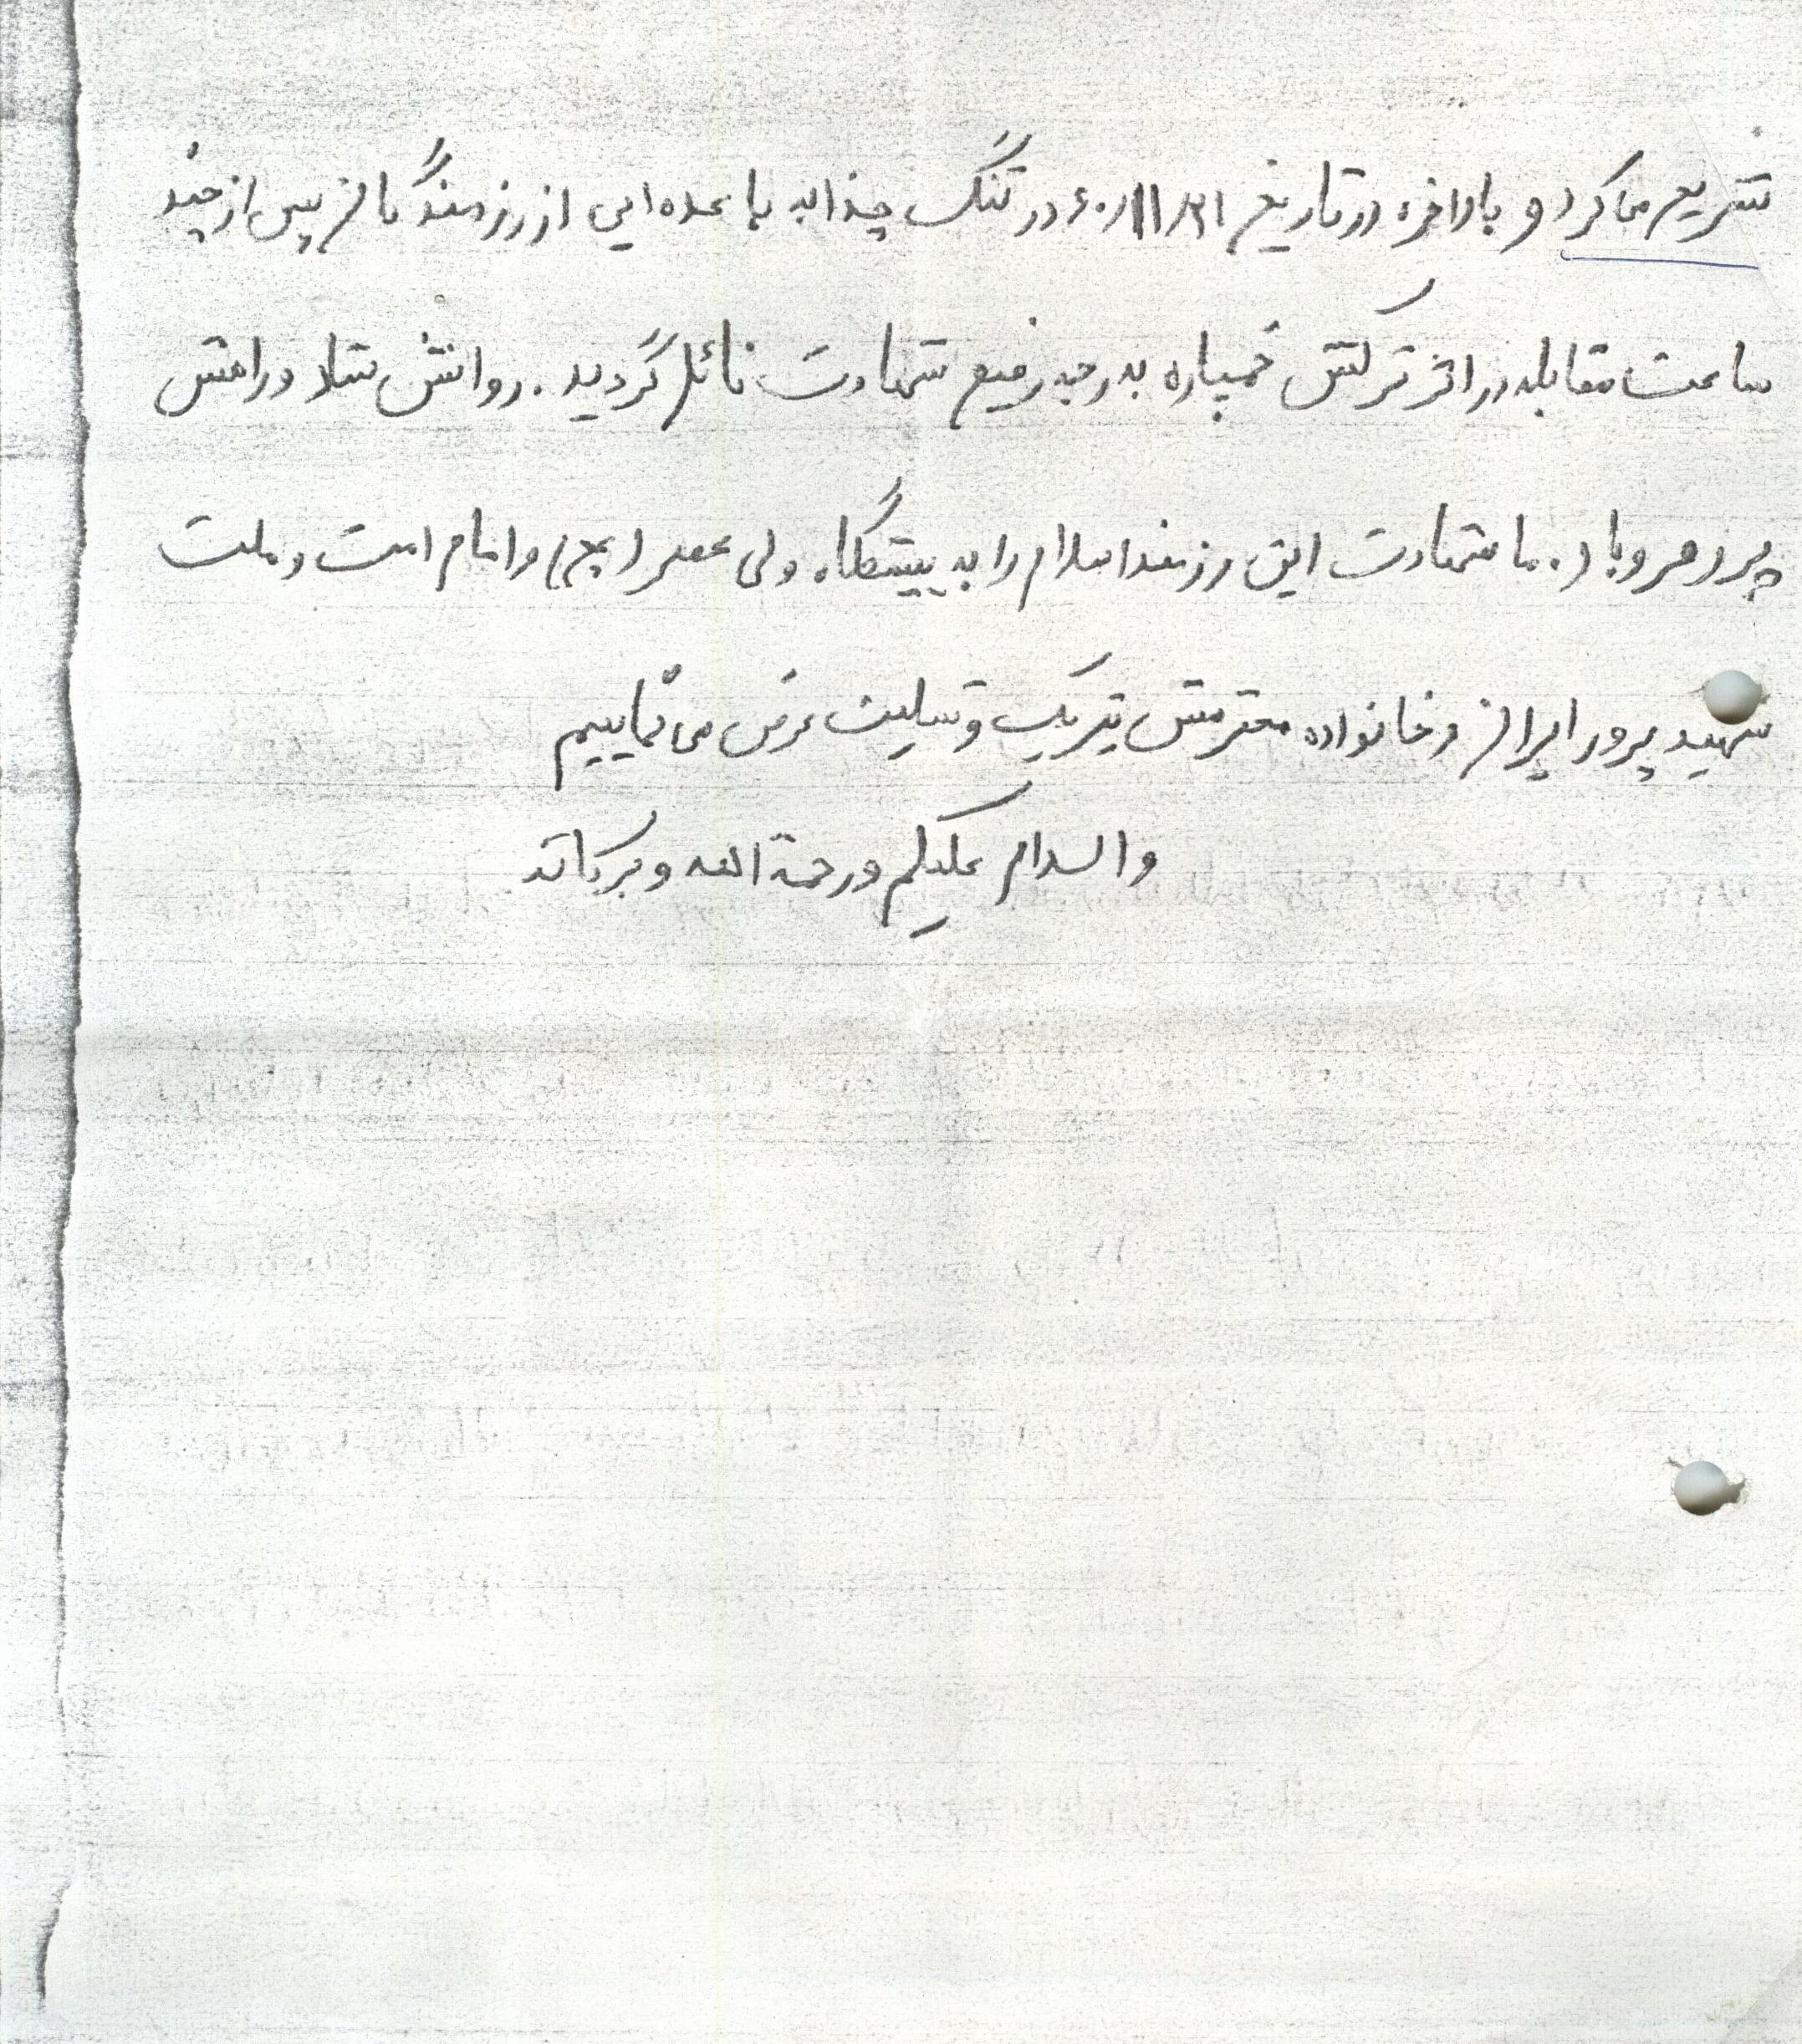 تشریع می‌کرد و بالاخره در تاریخ ۶۰/۱۱/۲۱ در تنگ چذابه با عده‌ایی از رزمندگان پس از چند
ساعت مقابله در اثر ترکش خمپاره به درجه رفیع شهادت نائل گردید. روانش شاد و راهش
پر رهرو باد. ما شهادت این رزمنده اسلام را به پیشگاه ولی عصر (عج) و امام امت و ملت
شهید پرور ایران و خانواده محترمش تبریک و تسلیت عرض می‌نماییم
والسلام علیکم و رحمة الله و برکاته